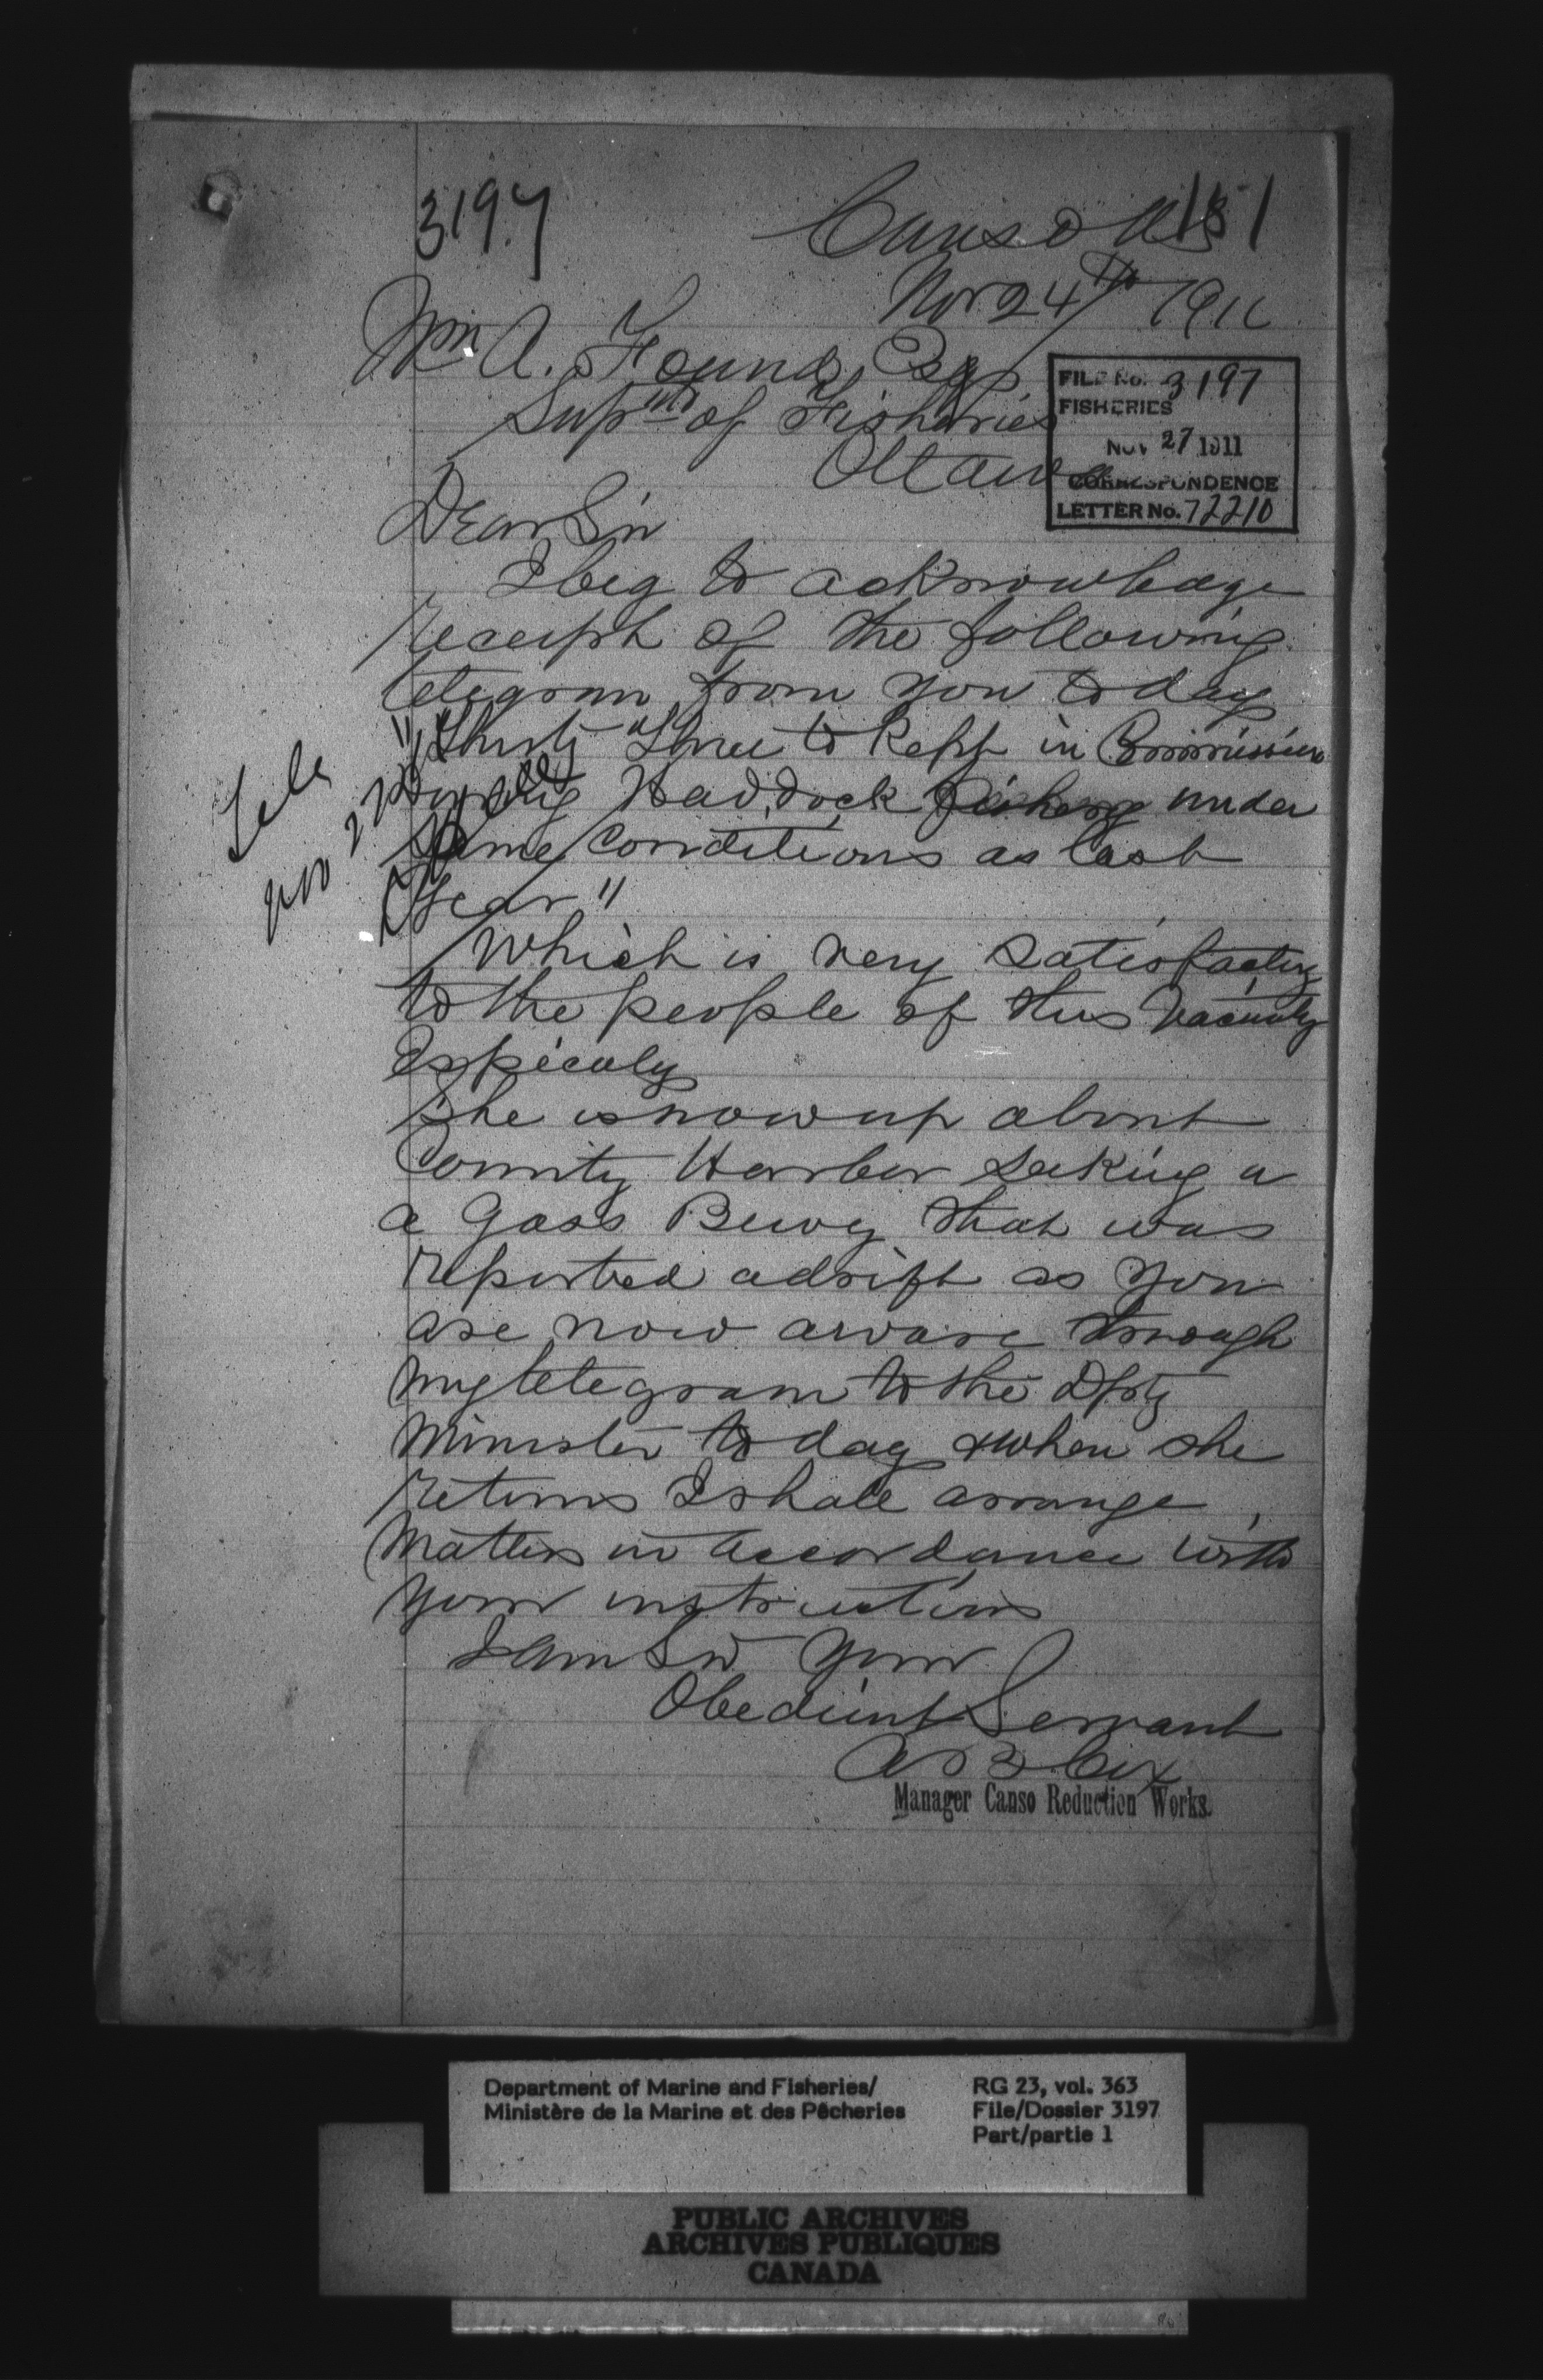 3197
Canso NS 151
Nov 24th 1911
Wm A. Found Esq
Supnt of Fisheries
Ottawa
FILE No. 3197
FISHERIES
NOV 27 1911
CORRESPONDENCE
LETTER No. 72210
Dear Sir
I beg to acknowledge
receipt of the following
telegram from you to day
"Thirty Three to kept in Commission
during Haddock fishery under
same conditions as last
year"
Tele
Nov 22
Which is very satisfactory
to the people of this vacinity
Especaly
She is now up about
County Harbor seeking a
a Gass Buoy that was
reported adrift as you
are now aware through
my telegram to the Dpty
Minister to day & when she
returns I shall arrange
matters in accordance with
your instructions
I am Sir your
Obedient Servant
Manager Canso Reduction Works.
Department of Marine and Fisheries/
Ministère de la Marine et des Pêcheries
RG 23, vol. 363
File/Dossier 3197
Part/partie 1
PUBLIC ARCHIVES
ARCHIVES PUBLIQUES
CANADA